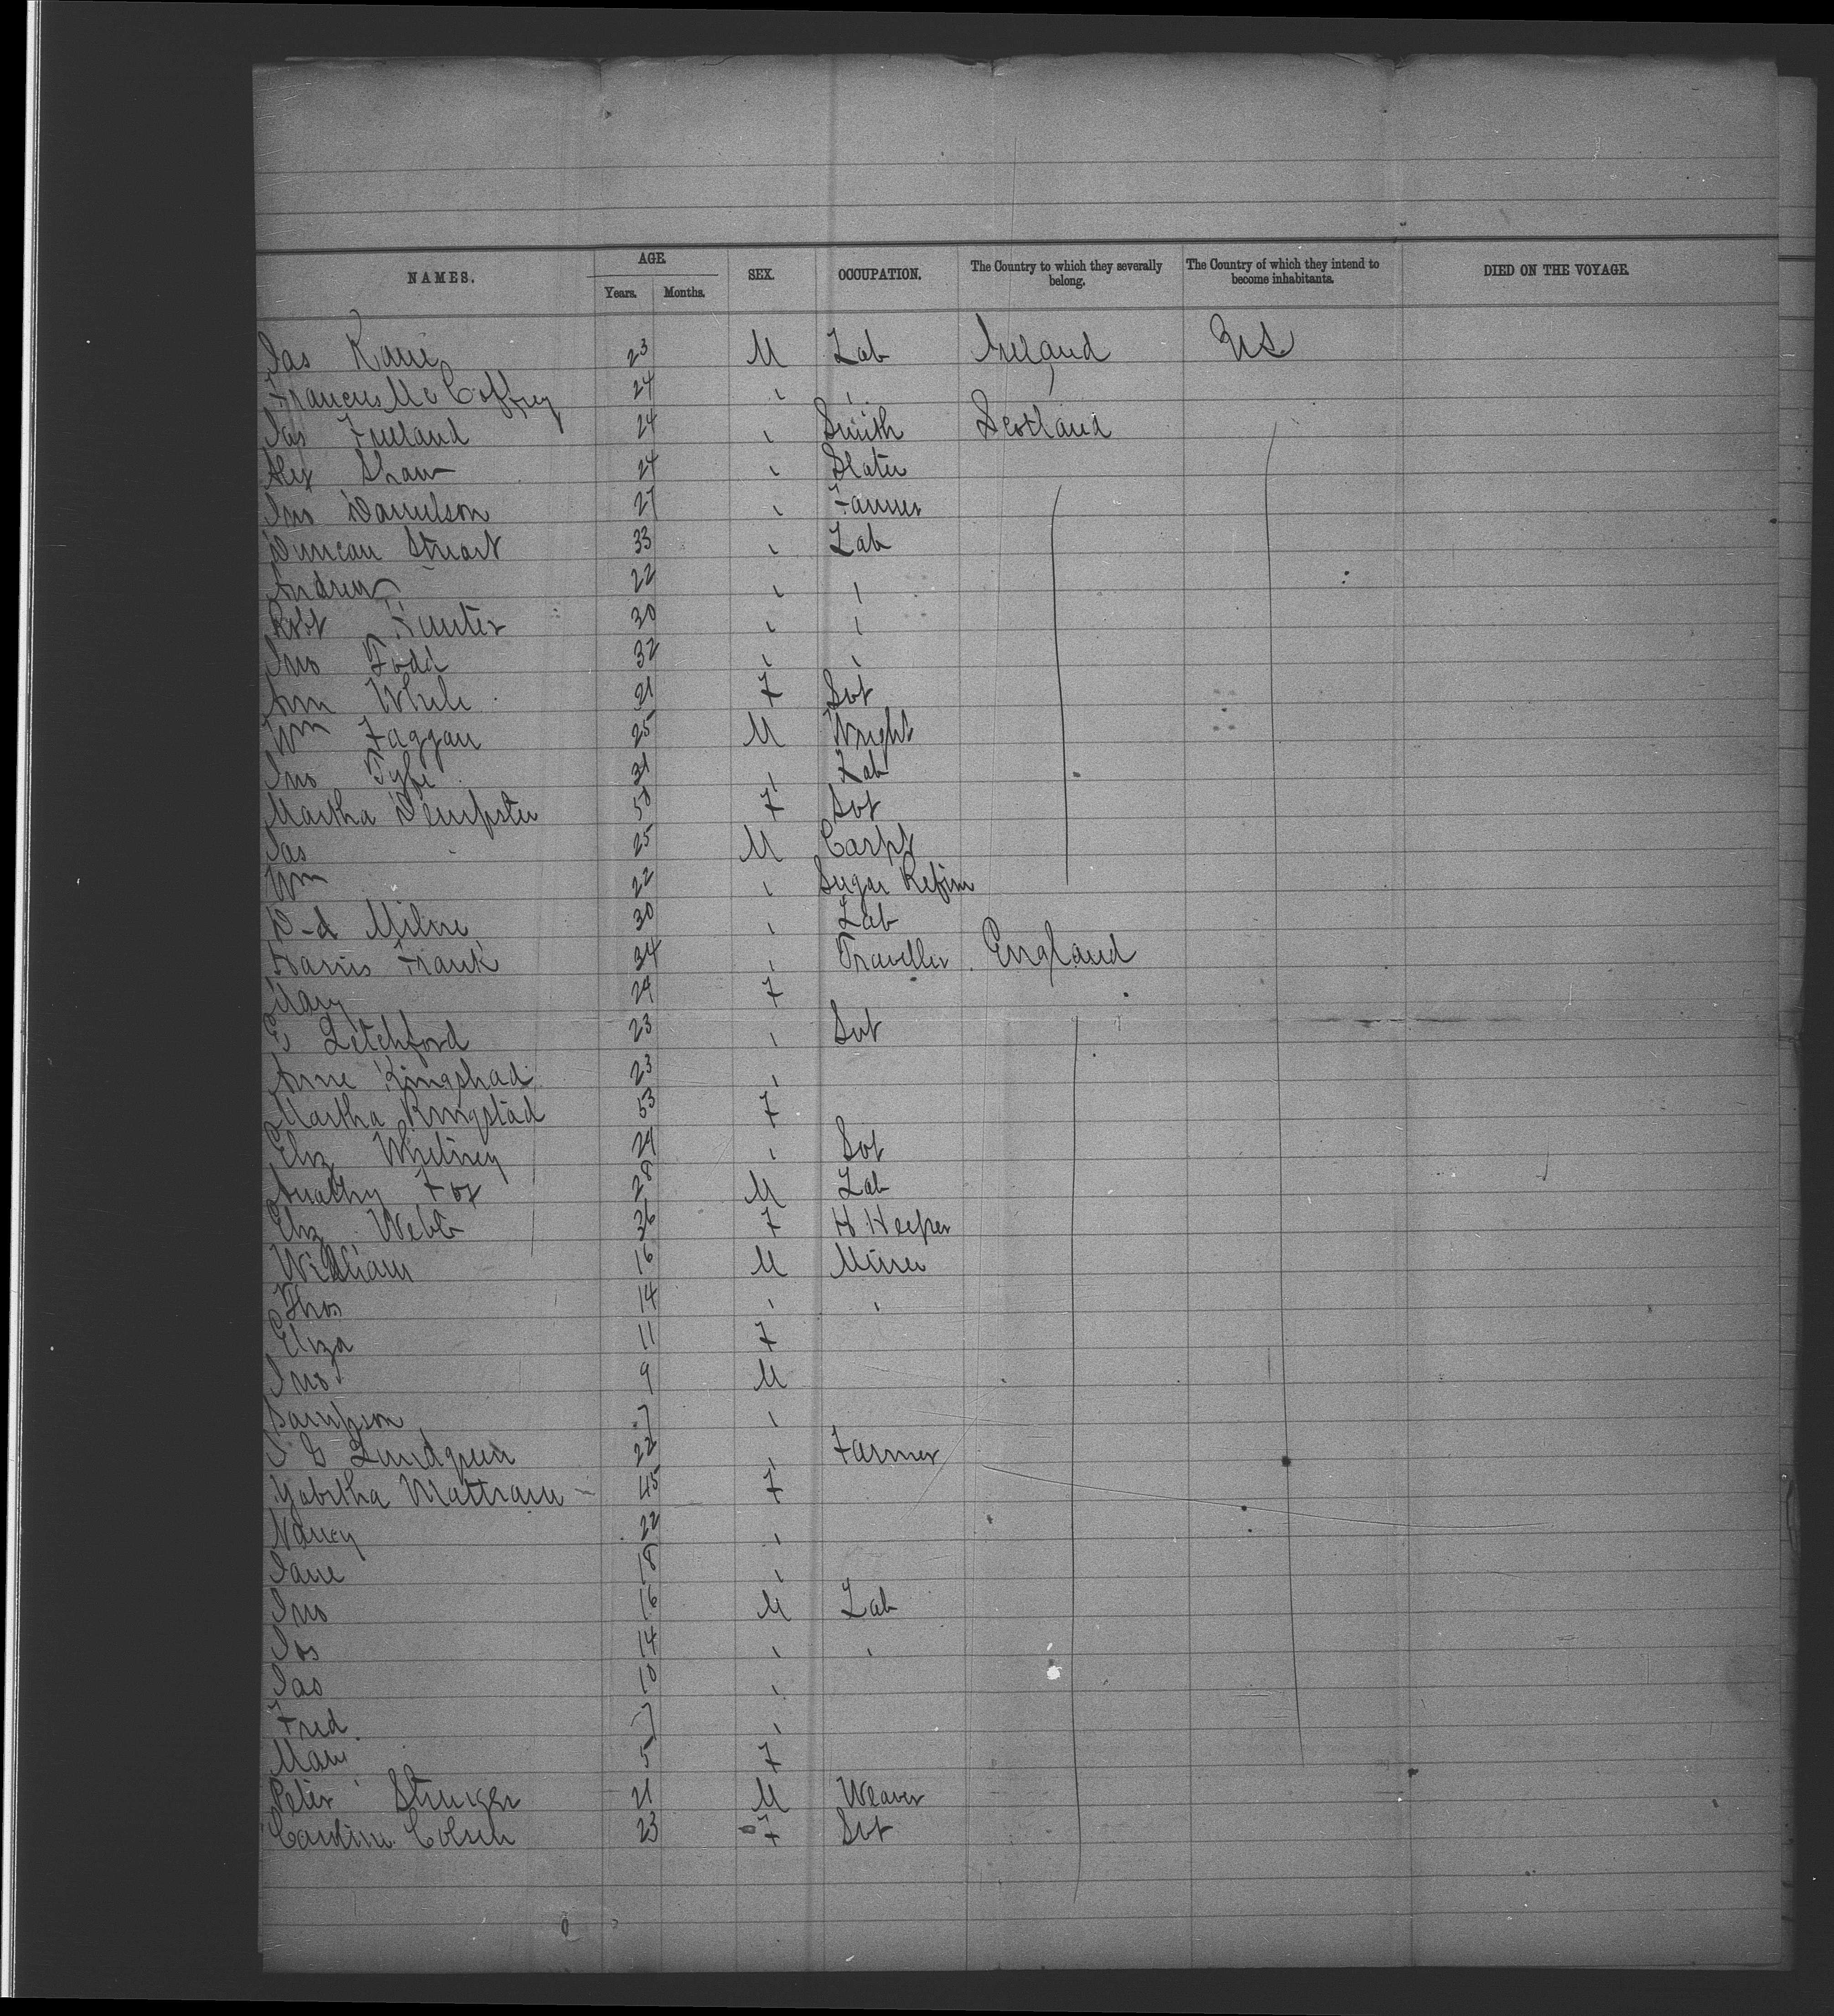 NAMES. AGE. Years. Months. SEX. OCCUPATION. The Country to which they severally belong. The Country of which they intend to become inhabitants. DIED ON THE VOYAGE.
Jas Kane 23 M Lab Ireland US
Francis McCoffrey 24 " "
Jas Freeland 24 " Smith Scotland
Alex Shaw 24 " Slater
Jno Danielson 27 " Farmer
Duncan Stuart 33 " Lab
Andrew 22 " "
Robt Hunter 30 " "
Jno Todd 32 " "
Ann White 21 F Svt
Wm Faggan 25 M Wright
Jno 31 " Lab
Martha Dempster 50 F Svt
Jas 25 M Carptr
Wm 22 " Sugar Refiner
D-d Milne 30 " Lab
Harris Frank 34 " Traveller England
Mary 24 F
E Letchford 23 " Svt
Anne 23 "
Martha Kingstad 53 F
Eliz Whitney 24 " Svt
Fox 28 M Lab
Eliz Webb 36 F H Keeper
William 16 M Miner
Thos 14 " "
Eliza 11 F
Jno 9 M
Sampson 7 "
Lundgren 22 " Farmer
Mattram 45 F
Nancy 22 "
Jane 18 "
Jno 16 M Lab
Jos 14 " "
Jas 10 "
Fred 7 "
Mary 5 F
Peter 21 M Weaver
Caroline 23 F Svt